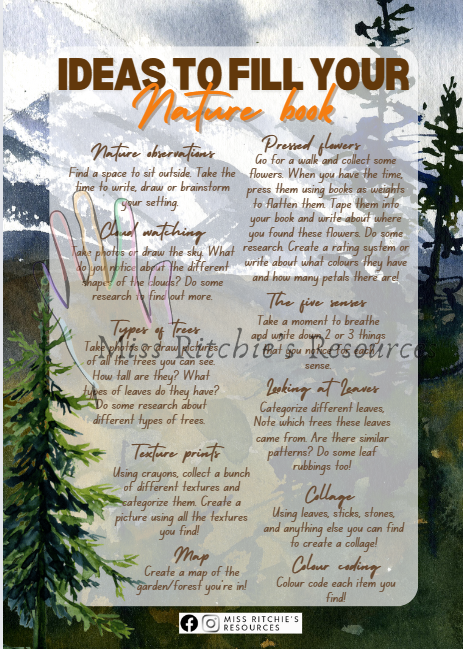 IDEAS TO FILL YOUR
Nature book
Nature observations
Find a space to sit outside. Take the
time to write, draw or brainstorm
your setting.
Cloud watching
Take photos or draw the sky. What
do you notice about the different
shapes of the clouds? Do some
research to find out more.
Types of trees
Take photos or draw pictures
of all the trees you can see.
How tall are they? What
types of leaves do they have?
Do some research about
different types of trees.
Texture prints
Using crayons, collect a bunch
of different textures and
categorize them. Create a
picture using all the textures
you find!
Map
Create a map of the
garden/forest you're in!
Pressed flowers
Go for a walk and collect some
flowers. When you have the time,
press them using books as weights
to flatten them. Tape them into
your book and write about where
you found these flowers. Do some
research. Create a rating system or
write about what colours they have
and how many petals there are!
The five senses
Take a moment to breathe
and write down 2 or 3 things
that you notice for each
sense.
Looking at Leaves
Categorize different leaves,
Note which trees these leaves
came from. Are there similar
patterns? Do some leaf
rubbings too!
Collage
Using leaves, sticks, stones,
and anything else you can find
to create a collage!
Colour coding
Colour code each item you
find!
Miss Ritchie's Resource
MISS RITCHIE'S
RESOURCES